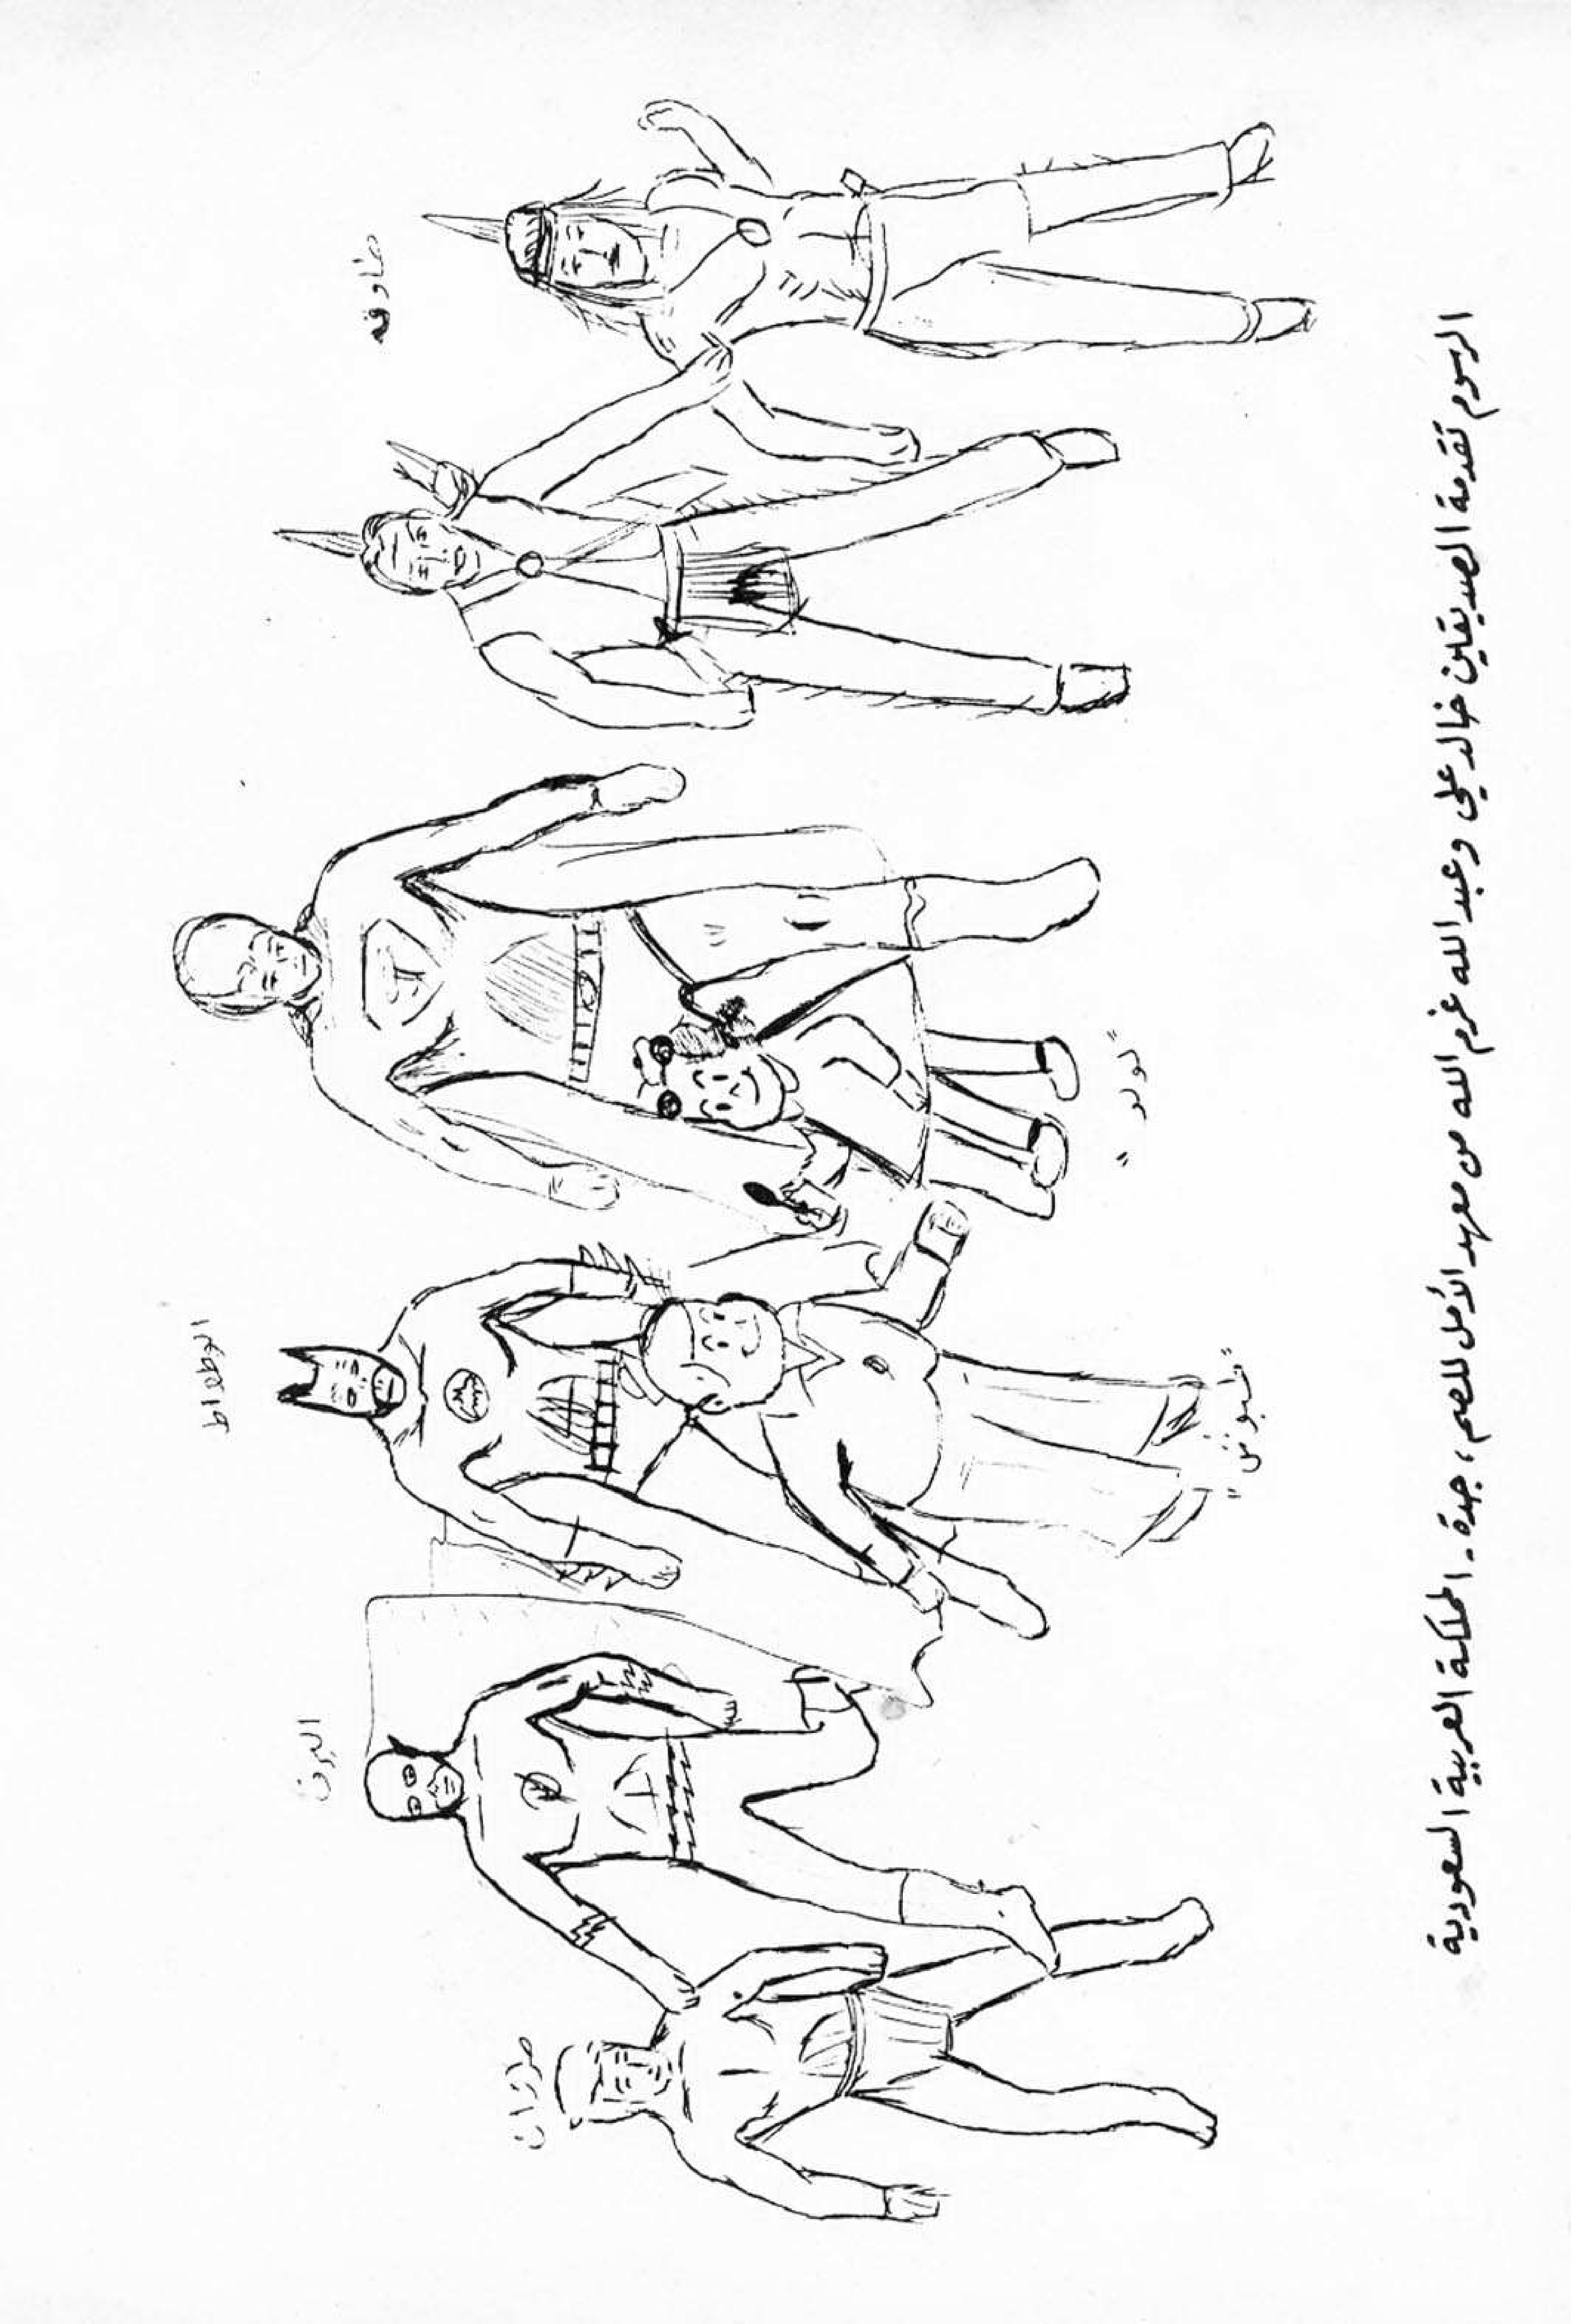 الوطواط
البرق
"لولو"
"طبوش"
الرسوم تقدمة الصديقين خالد علي وعبدالله غرم الله من معهد الأمل للصم، جدة - المملكة العربية السعودية